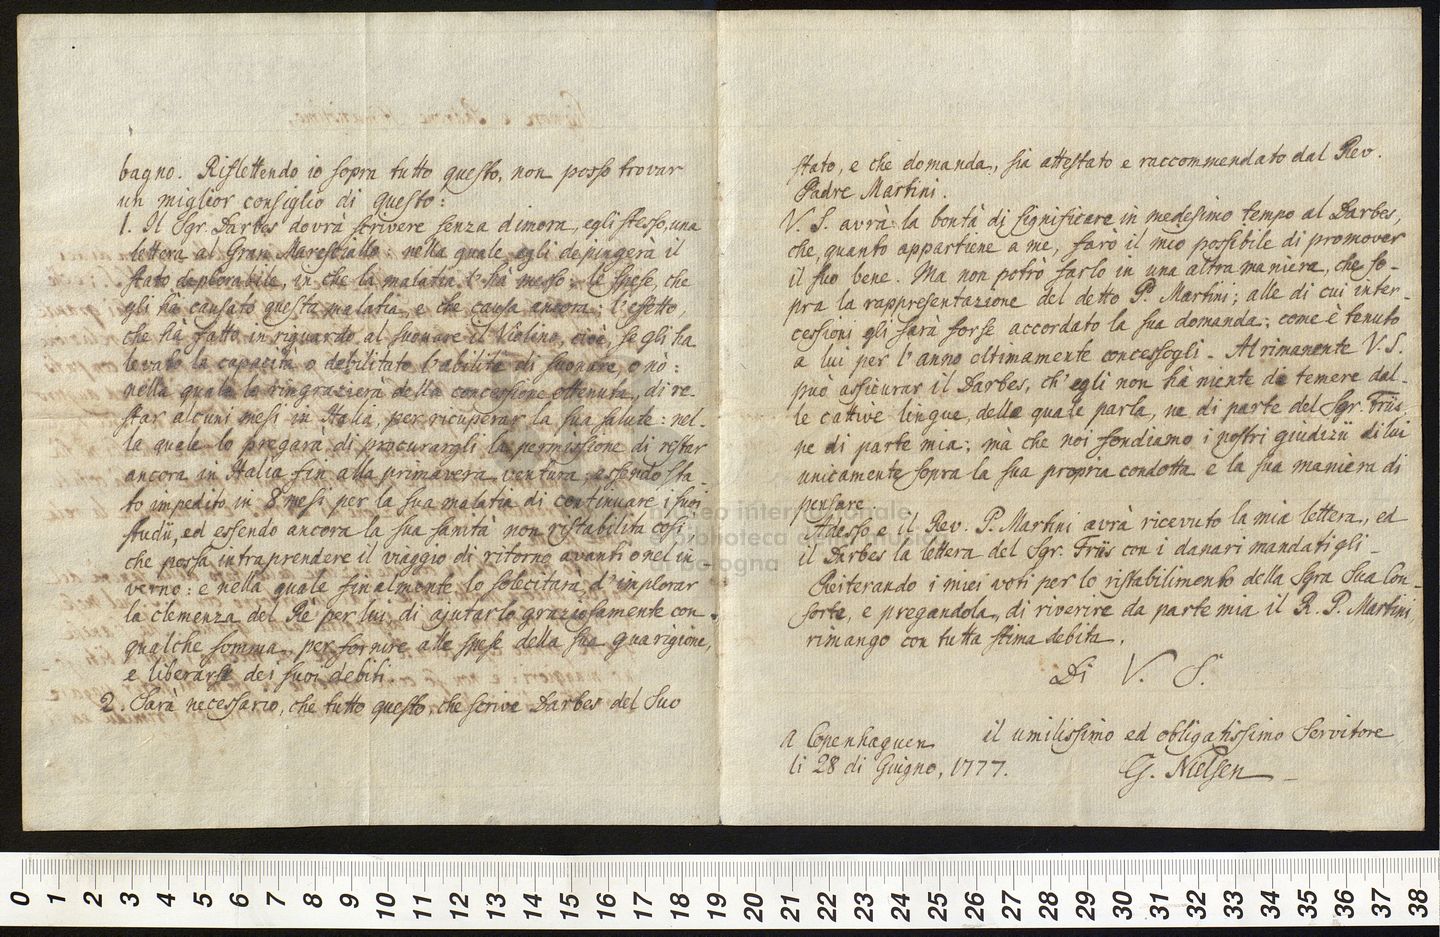 bagno. Riflettendo io sopra tutto questo, non posso trovar
un miglior consiglio di questo:
1. Il Sgr. Darbes dovrà scrivere senza dimora, egli stesso, una
lettera al Gran Maresciallo: nella quale egli depingerà il
stato deplorabile, in che la malatia l'hà messo: le spese, che
gli hà causato questa malatia, e che causa ancora: l'effetto,
che hà fatto in riguardo al suonare il Violino, cioè, se gli ha
levato la capacità o debilitato l'abilità di suonare, o nò:
nella quale lo ringrazierà della concessione ottenuta, di re-
star alcuni mesi in Italia, per ricuperar la sua salute: nel-
la quale lo pregarà, di procurargli la permissione di restar
ancora in Italia fin alla primavera ventura, essendo sta-
to impedito in 8 mesi per la sua malatia di continuare i suoi
studii, ed essendo ancora la sua sanità non ristabilita cosi
che possa intraprendere il viaggio di ritorno avanti o nel in
verno: e nella quale finalmente lo solecitarà, d'implorar
la clemenza del Re per lui, di ajutarlo graziosamente con
qualche somma, per fornire alle spese della sua guarigione,
e liberarse dei suoi debiti.
2. Sarà necessario, che tutto questo, che scrive Darbes del suo
stato, e che domanda, sia attestato e raccommendato dal Rev.
Padre Martini.
V. S. avrà la bontà di significare in medesimo tempo al Darbes,
che, quanto appartiene a me, farò il mio possibile di promover
il suo bene. Ma non potrò farlo in una altra maniera, che so-
pra la rappresentazione del detto P. Martini; alle di cui inter-
cessioni gli sarà forse accordato la sua domanda; come è tenuto
a lui per l'anno oltimamente concessogli. Al rimanente V. S.
può assicurar il Darbes, ch'egli non hà niente da temere dal-
le cattive lingue, delle quale parla, ne di parte del Sgr. Friis,
ne di parte mia; mà che noi fondiamo i nostri giudizii di lui
unicamente sopra la sua propria condotta e la sua maniera di
pensare.
Adesso e il Rev. P. Martini avrà ricevuto la mia lettera, ed
il Darbes la lettera del Sgr. Friis con i danari mandatigli.
Reiterando i miei voti per lo ristabilimento della Sgra Sua Con-
sorte, e pregandola, di riverire da parte mia il R. P. Martini,
rimango con tutta stima debita.
Di V. S.
a Copenhaguen il umilissimo ed obligatissimo Servitore
li 28 di Giugno, 1777. G. Nielsen
museo internazionale
e biblioteca della musica
di bologna
0 1 2 3 4 5 6 7 8 9 10 11 12 13 14 15 16 17 18 19 20 21 22 23 24 25 26 27 28 29 30 31 32 33 34 35 36 37 38